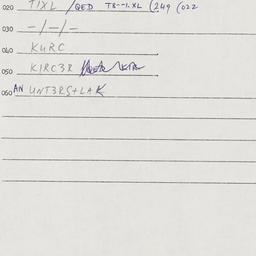 020 TIXL /QED T8--1.XL (249 (022
030 -/-/-
040 KURC
050 KIRC3R
060 AN UNT3RS+LAK